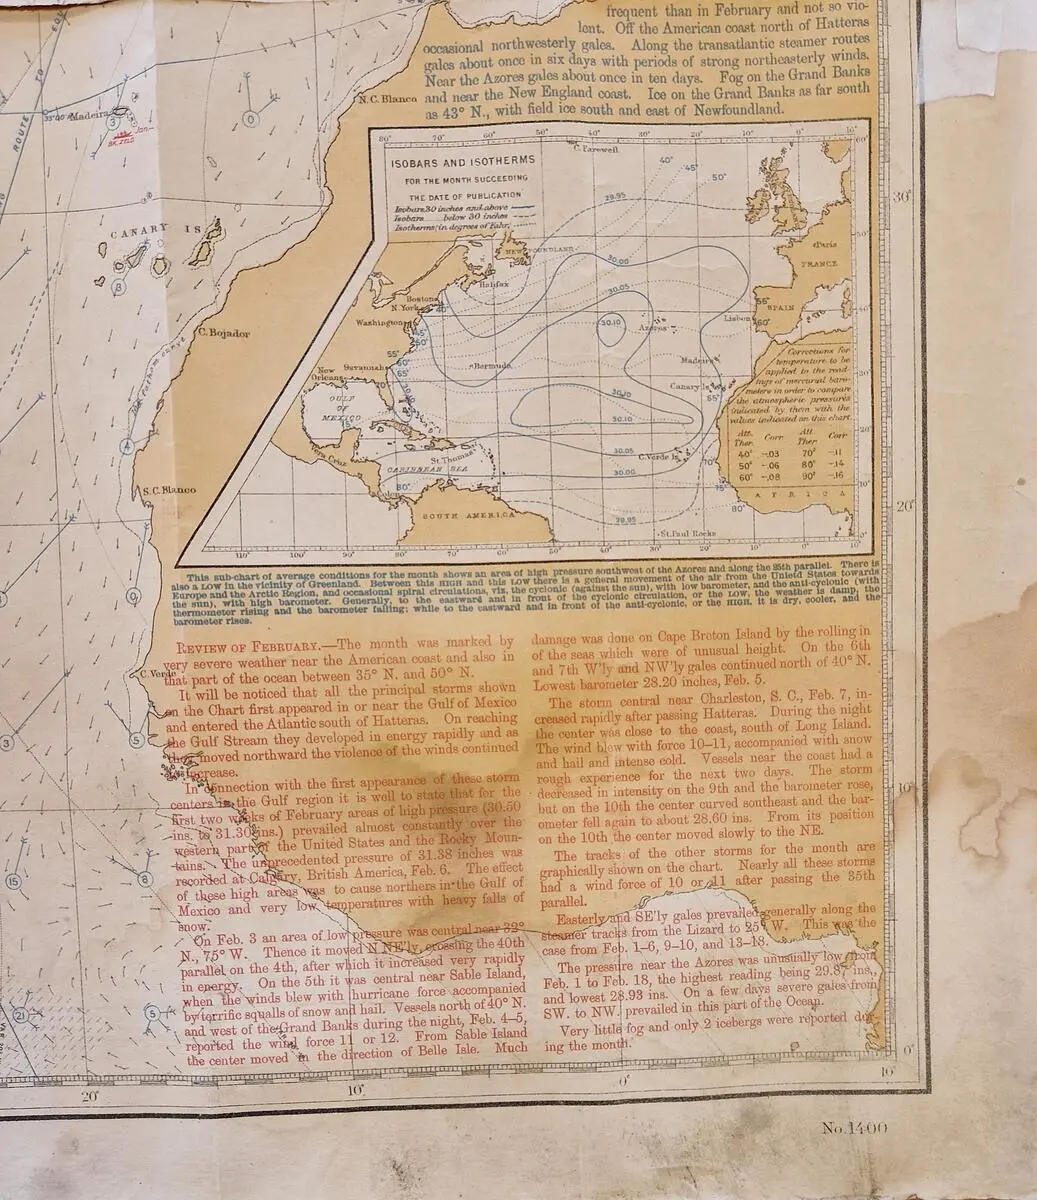 frequent than in February and not so vio-
lent. Off the American coast north of Hatteras
occasional northwesterly gales. Along the transatlantic steamer routes
gales about once in six days with periods of strong northeasterly winds.
Near the Azores gales about once in ten days. Fog on the Grand Banks
and near the New England coast. Ice on the Grand Banks as far south
as 43° N., with field ice south and east of Newfoundland.
ROUTE
TO
Madeira
CANARY IS
N.C. Blanco
C. Bojador
S.C. Blanco
C. Verde
ISOBARS AND ISOTHERMS
FOR THE MONTH SUCCEEDING
THE DATE OF PUBLICATION
Isobars 30 inches and above
Isobars below 30 inches
Isotherms in degrees of Fahr.
80° 70° 60° 50° 40° 30° 20° 10° 0° 10°
C. Farewell
40° 45° 50°
29.95
NEWFOUNDLAND
Paris
FRANCE
30.00
Halifax
30.05
Boston
N. York
SPAIN
Washington
30.10
Azores
Lisbon
Savannah
Bermuda
Madeira
New
Orleans
Canary Is
GULF
OF
MEXICO
30.10
30.10
Vera Cruz
St Thomas
30.05
C. Verde Is
CARIBBEAN SEA
30.00
Colon
SOUTH AMERICA
29.95
St. Paul Rocks
AFRICA
110° 100° 90° 80° 70° 60° 50° 40° 30° 20° 10°
Corrections for
temperature to be
applied to the read-
ings of mercurial baro-
meters in order to compare
the atmospheric pressures
indicated by them with the
values indicated on this chart.
Att. Ther. Corr. Att. Ther. Corr
40° -.03 70° -.11
50° -.06 80° -.14
60° -.08 90° -.16
This sub-chart of average conditions for the month shows an area of high pressure southwest of the Azores and along the 35th parallel. There is
also a LOW in the vicinity of Greenland. Between this HIGH and this LOW there is a general movement of the air from the United States towards
Europe and the Arctic Region, and occasional spiral circulations, viz, the cyclonic (against the sun), with low barometer, and the anti-cyclonic (with
the sun), with high barometer. Generally, to the eastward and in front of the cyclonic circulation, or the LOW, the weather is damp, the
thermometer rising and the barometer falling; while to the eastward and in front of the anti-cyclonic, or the HIGH, it is dry, cooler, and the
barometer rises.
REVIEW OF FEBRUARY.—The month was marked by
very severe weather near the American coast and also in
that part of the ocean between 35° N. and 50° N.
It will be noticed that all the principal storms shown
on the Chart first appeared in or near the Gulf of Mexico
and entered the Atlantic south of Hatteras. On reaching
the Gulf Stream they developed in energy rapidly and as
they moved northward the violence of the winds continued
to increase.
In connection with the first appearance of these storm
centers in the Gulf region it is well to state that for the
first two weeks of February areas of high pressure (30.50
ins. to 31.30 ins.) prevailed almost constantly over the
western part of the United States and the Rocky Moun-
tains. The unprecedented pressure of 31.38 inches was
recorded at Calgary, British America, Feb. 6. The effect
of these high areas was to cause northers in the Gulf of
Mexico and very low temperatures with heavy falls of
snow.
On Feb. 3 an area of low pressure was central near 32°
N., 75° W. Thence it moved N NE'ly, crossing the 40th
parallel on the 4th, after which it increased very rapidly
in energy. On the 5th it was central near Sable Island,
when the winds blew with hurricane force accompanied
by terrific squalls of snow and hail. Vessels north of 40° N.
and west of the Grand Banks during the night, Feb. 4–5,
reported the wind force 11 or 12. From Sable Island
the center moved in the direction of Belle Isle. Much
damage was done on Cape Breton Island by the rolling in
of the seas which were of unusual height. On the 6th
and 7th W'ly and NW'ly gales continued north of 40° N.
Lowest barometer 28.20 inches, Feb. 5.
The storm central near Charleston, S. C., Feb. 7, in-
creased rapidly after passing Hatteras. During the night
the center was close to the coast, south of Long Island.
The wind blew with force 10–11, accompanied with snow
and hail and intense cold. Vessels near the coast had a
rough experience for the next two days. The storm
decreased in intensity on the 9th and the barometer rose,
but on the 10th the center curved southeast and the bar-
ometer fell again to about 28.60 ins. From its position
on the 10th the center moved slowly to the NE.
The tracks of the other storms for the month are
graphically shown on the chart. Nearly all these storms
had a wind force of 10 or 11 after passing the 35th
parallel.
Easterly and SE'ly gales prevailed generally along the
steamer tracks from the Lizard to 25° W. This was the
case from Feb. 1–6, 9–10, and 13–18.
The pressure near the Azores was unusually low from
Feb. 1 to Feb. 18, the highest reading being 29.87 ins.,
and lowest 28.93 ins. On a few days severe gales from
SW. to NW. prevailed in this part of the Ocean.
Very little fog and only 2 icebergs were reported dur-
ing the month.
30°
20°
10°
0°
20° 10° 0° 10°
No. 1400